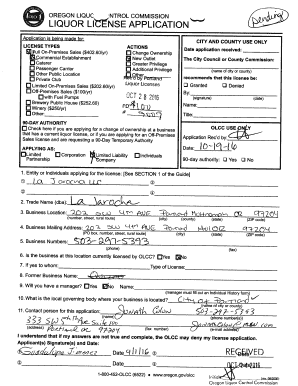 Pending
OREGON LIQUOR CONTROL COMMISSION
LIQUOR LICENSE APPLICATION
Application is being made for:
LICENSE TYPES
Full On-Premises Sales ($402.60/yr)
Commercial Establishment
Caterer
Passenger Carrier
Other Public Location
Private Club
Limited On-Premises Sales ($202.60/yr)
Off-Premises Sales ($100/yr)
with Fuel Pumps
Brewery Public House ($252.60)
Winery ($250/yr)
Other:
ACTIONS
Change Ownership
New Outlet
Greater Privilege
Additional Privilege
Other
Rec'd by Portland
Liquor Licenses
OCT 28 2016
$100
CITY AND COUNTY USE ONLY
Date application received:
The City Council or County Commission:
(name of city or county)
recommends that this license be:
Granted Denied
By:
(signature) (date)
Name:
Title:
90-DAY AUTHORITY
Check here if you are applying for a change of ownership at a business
that has a current liquor license, or if you are applying for an Off-Premises
Sales license and are requesting a 90-Day Temporary Authority
APPLYING AS:
Limited Partnership
Corporation
Limited Liability Company
Individuals
OLCC USE ONLY
Application Rec'd by:
Date: 10-19-16
90-day authority: Yes No
1. Entity or Individuals applying for the license: [See SECTION 1 of the Guide]
2. Trade Name (dba):
3. Business Location: 202 SW 4th AVE Portland OR 97204
(number, street, rural route) (city) (county) (state) (ZIP code)
4. Business Mailing Address: 202 SW 4th AVE Portland OR 97204
(PO box, number, street, rural route) (city) (state) (ZIP code)
5. Business Numbers: 503-297-5393
(phone) (fax)
6. Is the business at this location currently licensed by OLCC? Yes No
7. If yes to whom: Type of License:
8. Former Business Name:
9. Will you have a manager? Yes No Name:
(manager must fill out an Individual History form)
10. What is the local governing body where your business is located? City of Portland
(name of city or county)
11. Contact person for this application:
(name) (phone number(s))
(address) (fax number) (e-mail address)
I understand that if my answers are not true and complete, the OLCC may deny my license application.
Applicant(s) Signature(s) and Date:
Guadalupe Jimenez Date 9/1/16
RECEIVED
Date
1-800-452-OLCC (6522) • www.oregon.gov/olcc
Oregon Liquor Control Commission